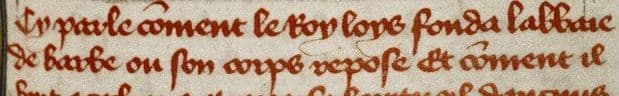 Cy parle cõment le Roy loys fonda labbaie
de barbe ou son corps repose Et cõment il